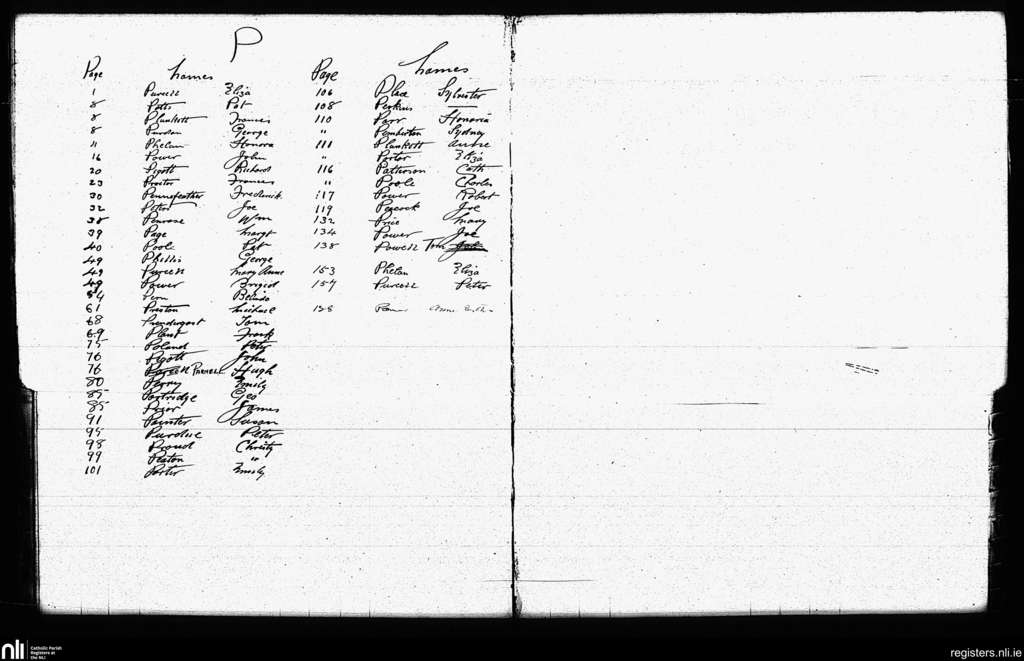 P
Page Names
1 Purcell Eliza
8 Potts Pat
8 Plunkett Frances
8 Purdon George
11 Phelan Honora
16 Power John
20 Pigott Richard
23 Proctor Frances
30 Pennefeather Frederick
32 Peter Joe
38 Penrose Wm
39 Page Margt
40 Poole Pat
49 Phillis George
49 Purcell Mary Anne
49 Power Brigid
54 Belinda
61 Preston Michael
68 Prendergast Tom
69 Plant Frank
75 Poland Peter
76 Pigott John
76 Parnell Hugh
80 Perry Emily
85 Partridge Geo
85 Prior James
91 Painter Susan
95 Purdue Peter
98 Proud Christy
99 Peaton "
101 Porter Emily
Page Names
106 Place Sylvester
108 Perkins —
110 Parr Honoria
" Pemberton Sydney
111 Plunkett
" Porter Eliza
116 Patterson Cath
" Poole Charles
117 Power Robert
119 Peacock Joe
132 Price Mary
134 Power Joe
138 Powell Tom
153 Phelan Eliza
157 Purcell Peter
158 Anne
nli
Catholic Parish
Registers at
the NLI
registers.nli.ie